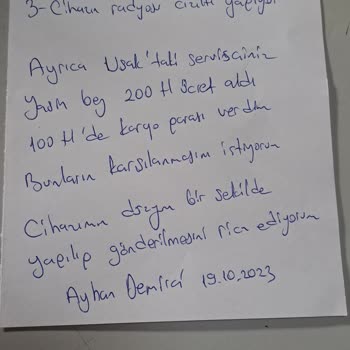 3-Cihazın radyosu cızıltı yapıyor
Ayrıca Uşak'taki servisciniz
Yasin bey 200 tl ücret aldı
100 tl'de kargo parası verdim
Bunların karşılanmasını istiyorum
Cihazımın düzgün bir şekilde
yapılıp gönderilmesini rica ediyorum
Ayhan Demirci 19.10.2023